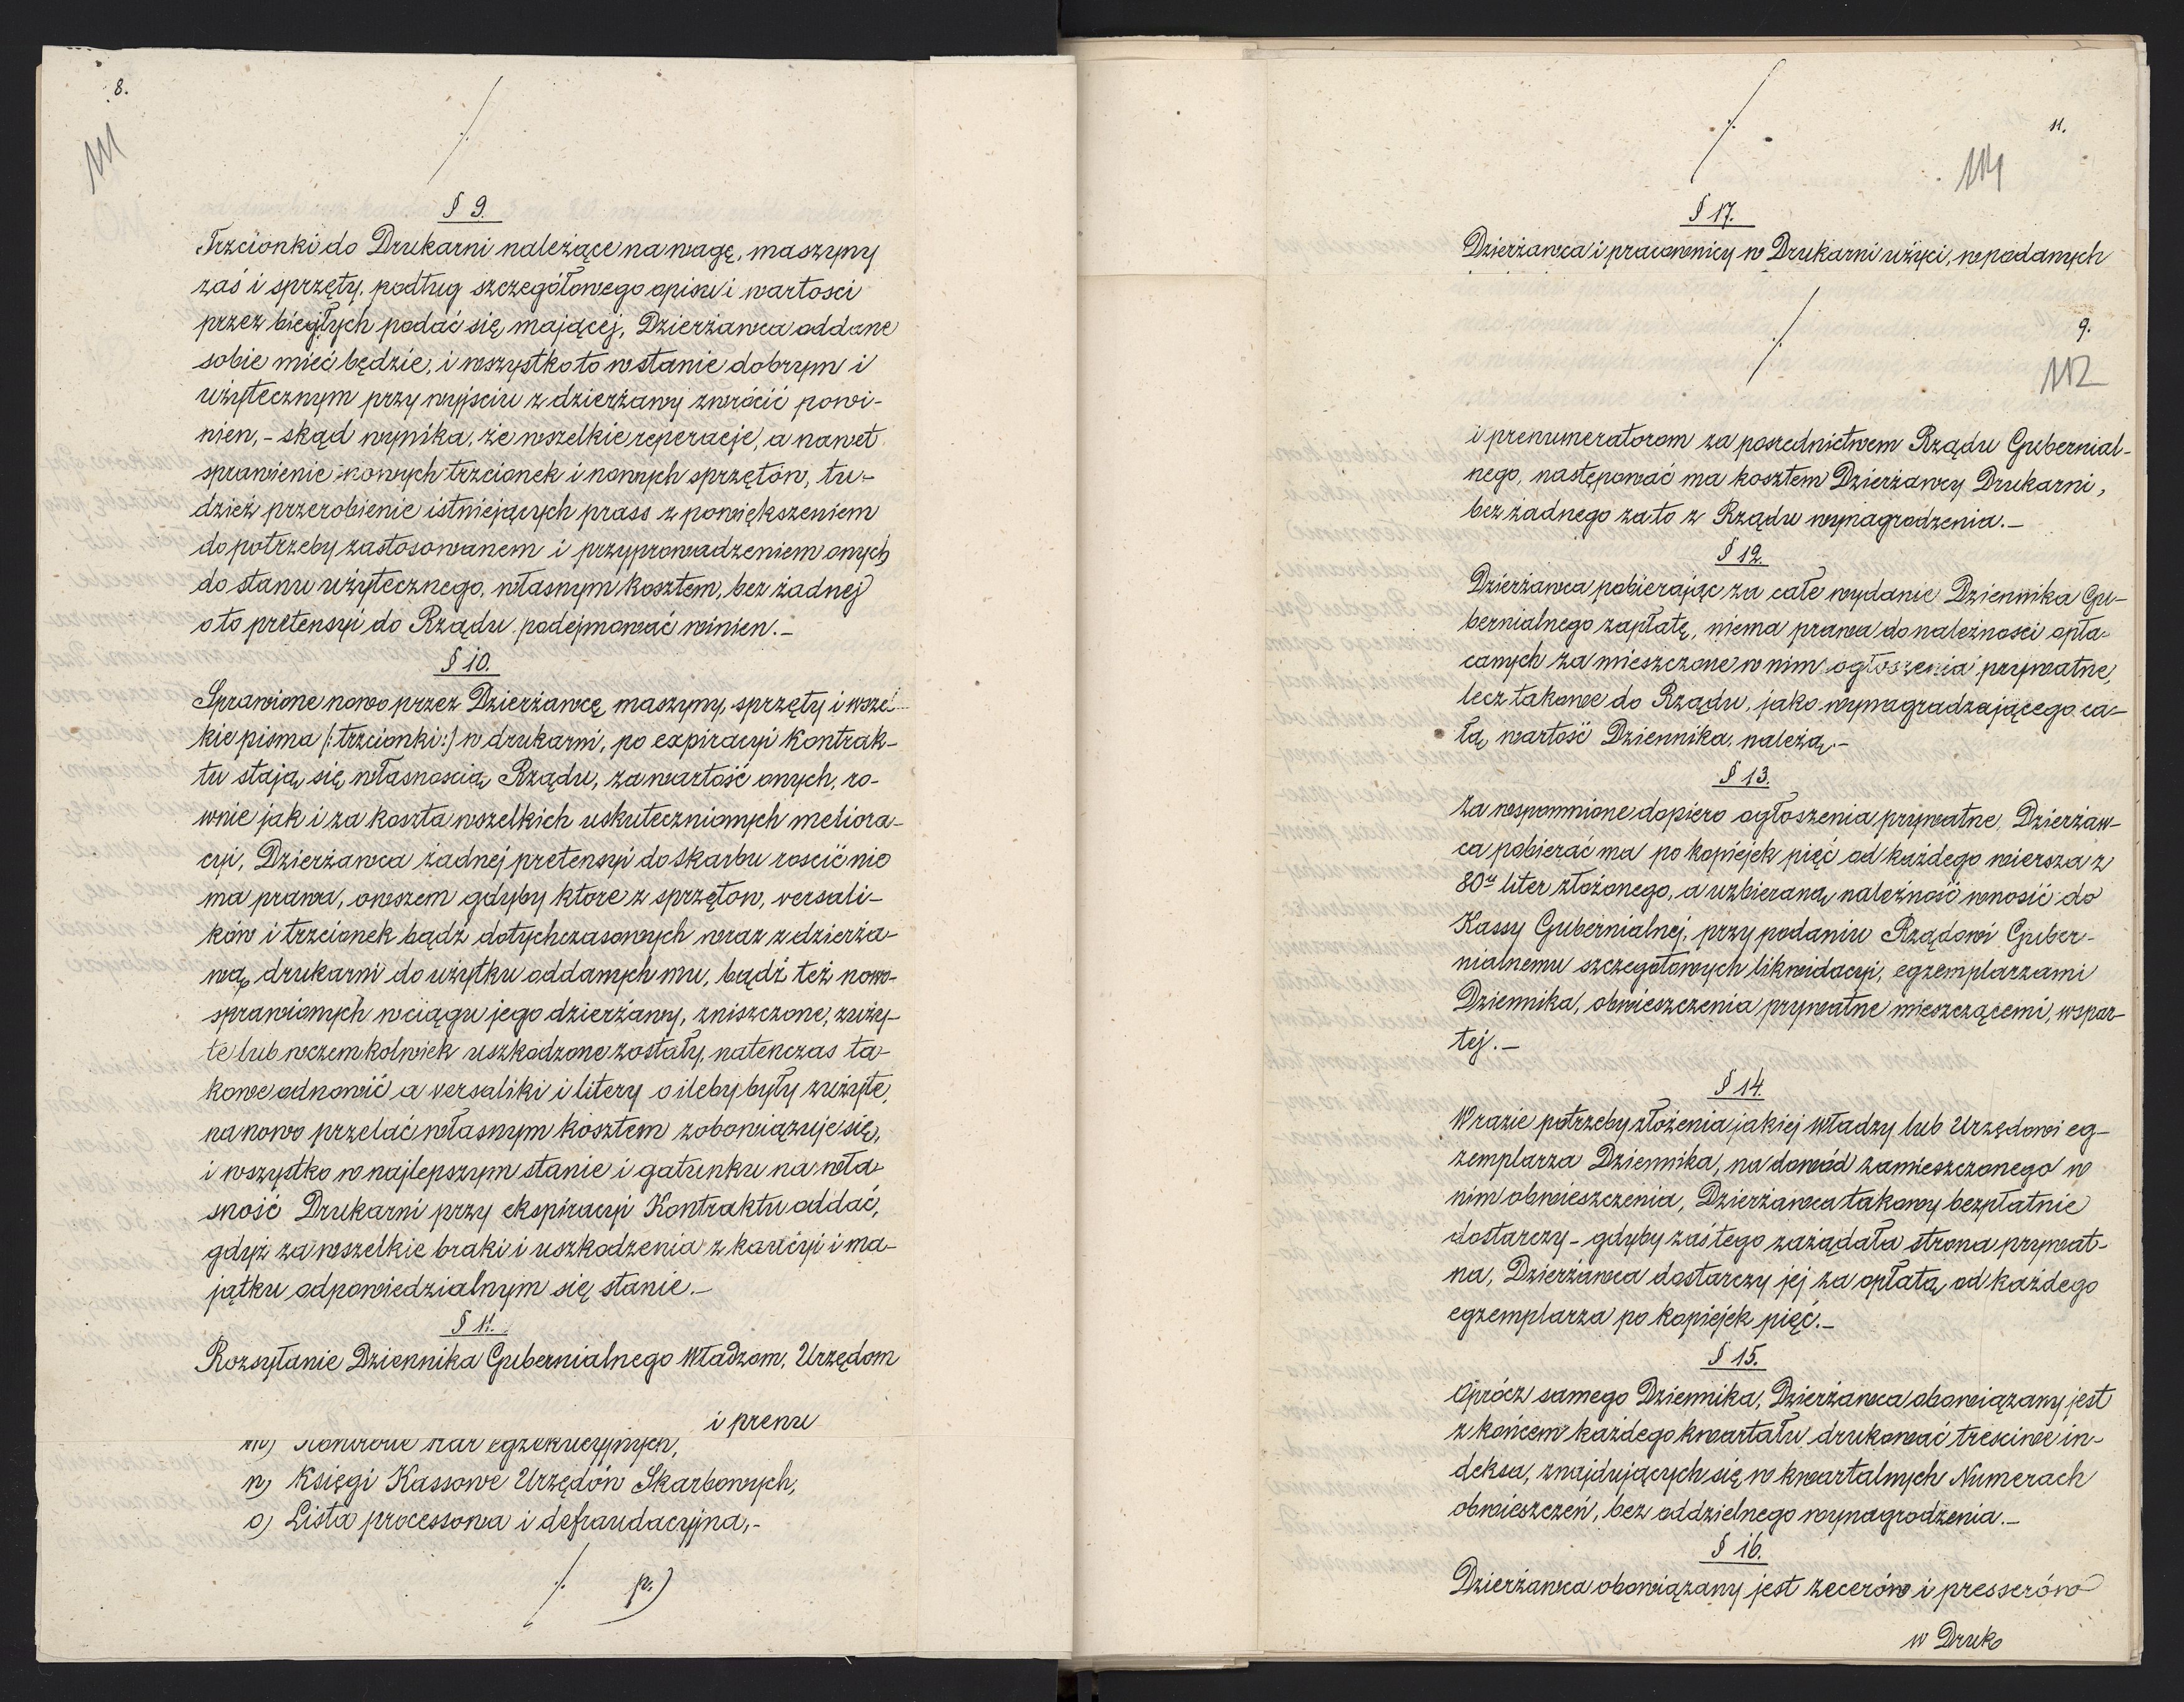 8.
111
§ 9.
Trzcionki do Drukarni należące na wagę, maszyny
zaś i sprzęty, podług szczegółowego opisu i wartosci
przez biegłych podać się mającej, Dzierżawca oddane
sobie mieć będzie, i wszystko to w stanie dobrym i
użytecznym przy wyjściu z dzierżawy zwrócić powi-
nien, - skąd wynika, że wszelkie reperacje, a nawet
sprawienie nowych trzcionek i nowych sprzętów, tu-
dzież przerobienie istniejących prass z powiększeniem
do potrzeby zastosowanem i przyprowadzeniem onych
do stanu użytecznego, własnym kosztem, bez żadnej
o to pretensyi do Rządu podejmować winien. -
§ 10.
Sprawione nowo przez Dzierżawcę maszyny, sprzęty i wszel-
kie pisma (: trzcionki :) w drukarni, po expiracyi Kontrak-
tu stają się własnoscią Rządu, za wartość onych, ro-
wnie jak i za koszta wszelkich uskutecznionych meliora-
cyi, Dzierżawca żadnej pretensyi do Skarbu rościć nie
ma prawa, owszem gdyby ktore z sprzętow, versali-
ków i trzcionek bądź dotychczasowych wraz z dzierża-
wą drukarni do użytku oddanych mu, bądź też nowo-
sprawionych w ciągu jego dzierżawy, zniszczone, zuży-
te lub w czemkolwiek uszkodzone zostały, natenczas ta-
kowe odnowić a versaliki i litery o ileby były zużyte,
na nowo przelać własnym kosztem zobowiązuje się,
i wszystko w najlepszym stanie i gatunku na wła-
sność Drukarni przy ekspiracyi Kontraktu oddać,
gdyż za wszelkie braki i uszkodzenia z kaucyi i ma-
jątku odpowiedzialnym się stanie. -
§ 11.
Rozsyłanie Dziennika Gubernialnego Władzom, Urzędom
i prenu
m) Kontrole kar egzekucyjnych,
n) Księgi Kassowe Urzędów Skarbowych,
o) Lista processowa i defraudacyjna, -
p.)
11.
114
§ 17.
Dzierżawca i pracownicy w Drukarni użyci, w podanych
9.
112
i prenumeratorom za posrednictwem Rządu Gubernial-
nego, następować ma kosztem Dzierżawcy Drukarni,
bez żadnego za to z Rządu wynagrodzenia. -
§ 12.
Dzierżawca pobierając za całe wydanie Dziennika Gu-
bernialnego zapłatę, niema prawa do należnosci opła-
canych za mieszczone w nim ogłoszenia prywatne,
lecz takowe do Rządu, jako wynagradzającego ca-
łą wartość Dziennika, należą. -
§ 13.
Za wspomnione dopiero ogłoszenia prywatne, Dzierżaw-
ca pobierać ma po kopiejek pięć od każdego wiersza z
80iu liter złożonego, a uzbieraną należność wnosić do
Kassy Gubernialnej, przy podaniu Rządowi Guber-
nialnemu szczegołowych likwidacyi, egzemplarzami
Dziennika, obwieszczenia prywatne mieszczącemi, wspar-
tej. -
§ 14.
W razie potrzeby złożenia jakiej Władzy lub Urzędowi eg-
zemplarza Dziennika, na dowód zamieszczonego w
nim obwieszczenia, Dzierżawca takowy bezpłatnie
dostarczy - gdyby zaś tego zażądała strona prywat-
na, Dzierżawca dostarczy jej za opłatą od każdego
egzemplarza po kopiejek pięć. -
§ 15.
Oprócz samego Dziennika, Dzierżawca obowiązany jest
z końcem każdego kwartału drukować tresciwe in-
deksa, znajdujących się w kwartalnych Numerach
obwieszczeń, bez oddzielnego wynagrodzenia. -
§ 16.
Dzierżawca obowiązany jest zecerów i presserów
w Druko